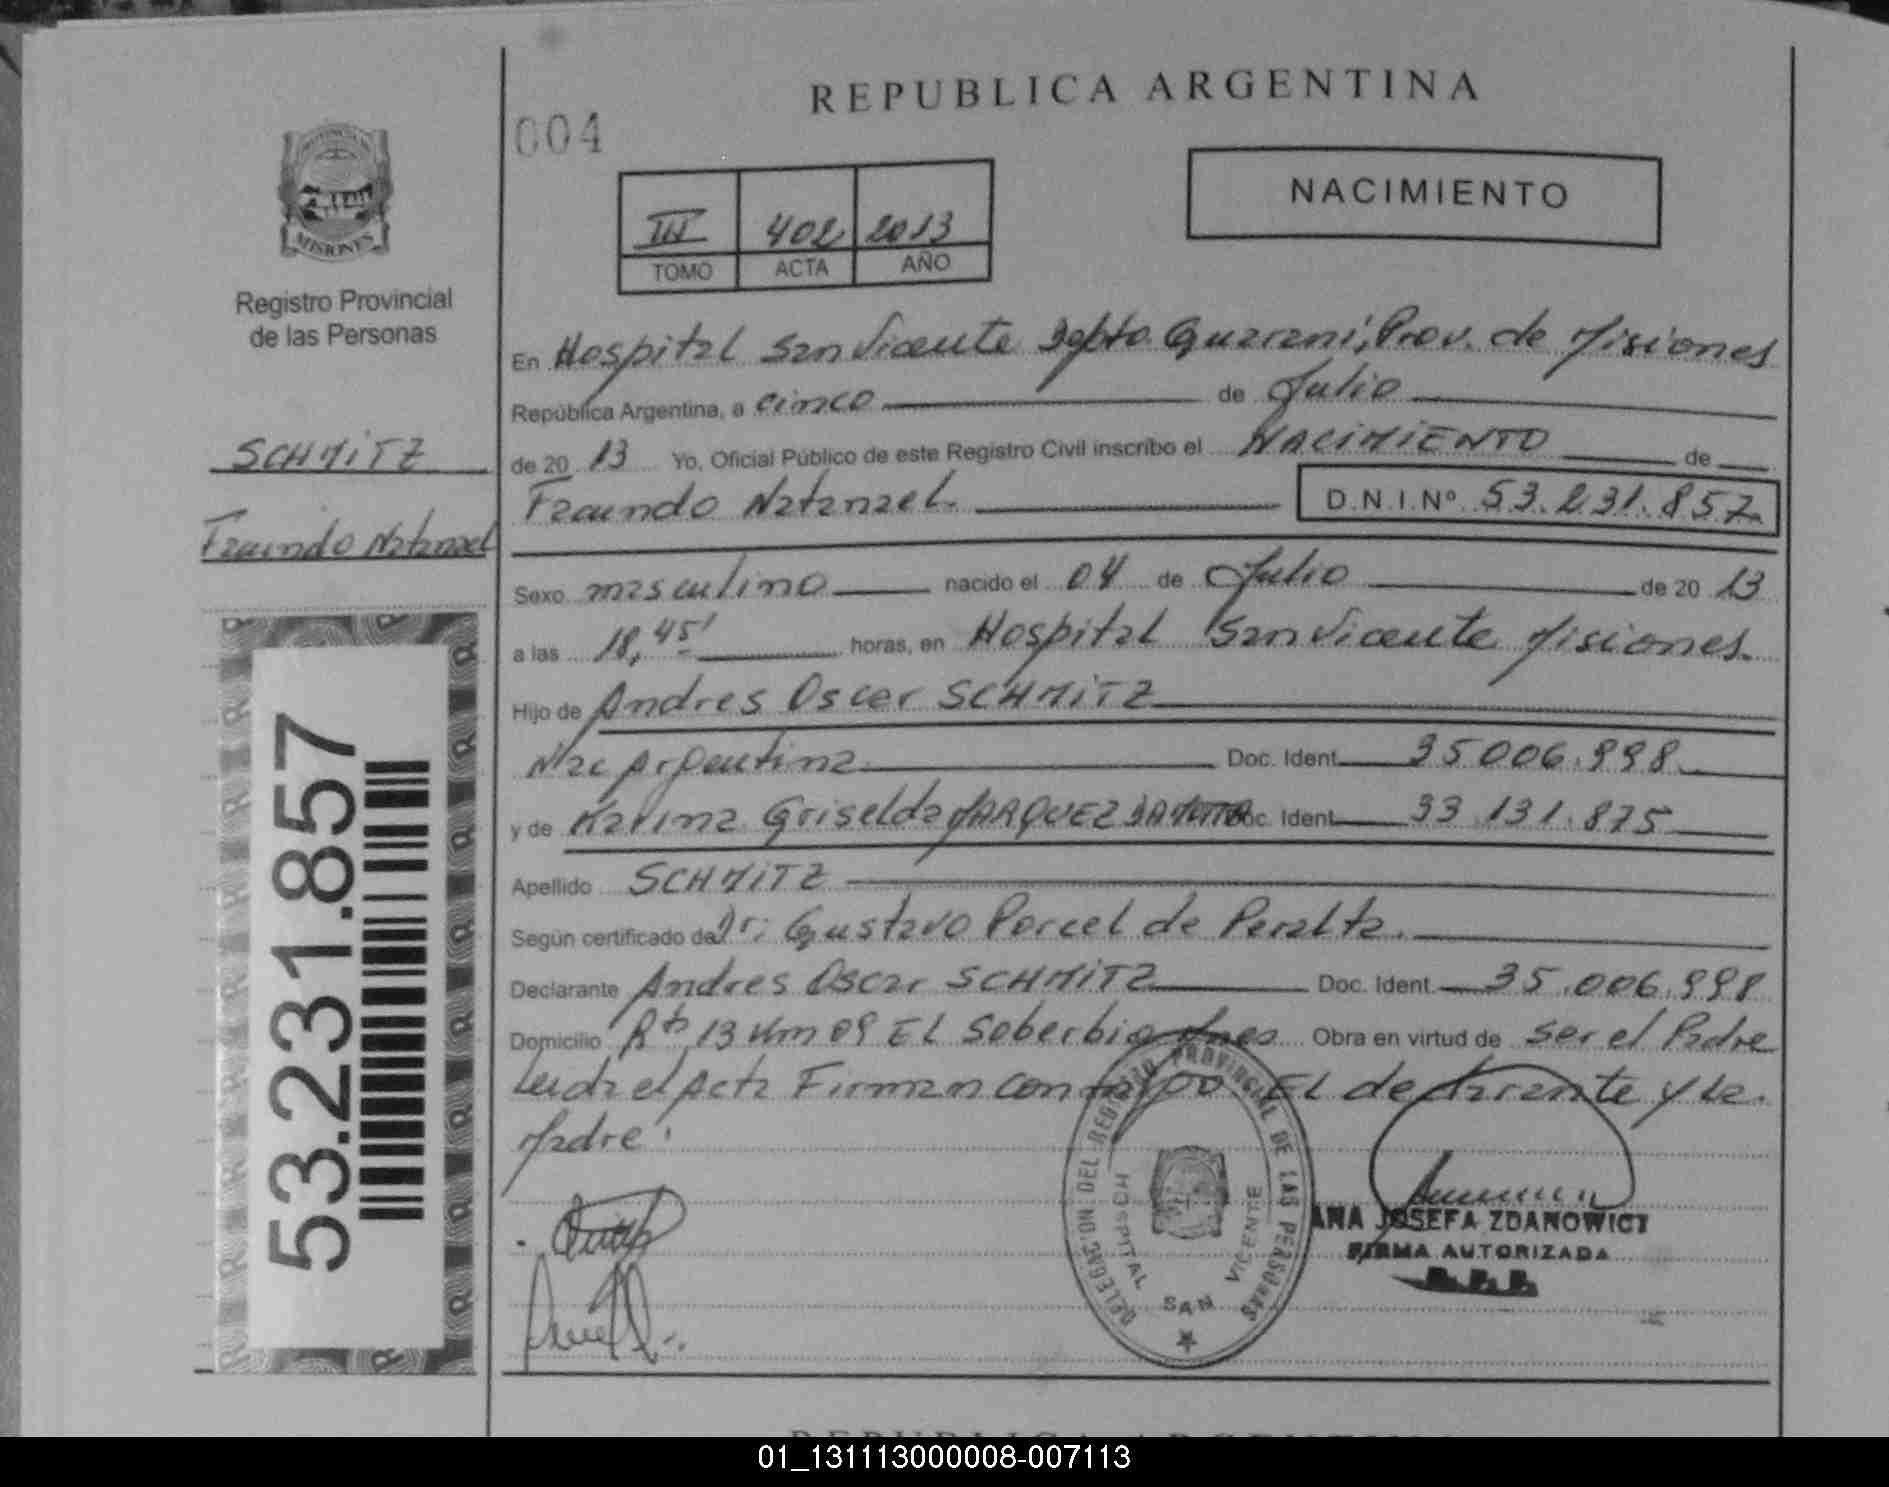 REPUBLICA ARGENTINA
004
NACIMIENTO
III 402 2013
TOMO ACTA AÑO
MISIONES
Registro Provincial
de las Personas
SCHMITZ
Facundo Natanael
53.231.857
En Hospital San Vicente Dpto. Guarani, Prov. de Misiones
República Argentina, a cinco de Julio
de 20 13 Yo, Oficial Público de este Registro Civil inscribo el NACIMIENTO de
Facundo Natanael D.N.I.Nº 53.231.857
Sexo masculino nacido el 04 de Julio de 20 13
a las 18,45' horas, en Hospital San Vicente Misiones.
Hijo de Andres Oscar SCHMITZ
Nac Argentina Doc. Ident. 35.006.998
y de Karina Griselda MARQUEZ DA MOTTA Doc. Ident. 33.131.875
Apellido SCHMITZ
Según certificado de Dr: Gustavo Porcel de Peralta.
Declarante Andres Oscar SCHMITZ Doc. Ident. 35.006.998
Domicilio Rta 13 Km 09 EL Soberbio Mnes Obra en virtud de ser el Padre
Leida el Acta Firman conmigo EL declarante y la
Madre.
DELEGACION DEL REGISTRO PROVINCIAL DE LAS PERSONAS
HOSPITAL SAN VICENTE
ANA JOSEFA ZDANOWICZ
FIRMA AUTORIZADA
01_131113000008-007113